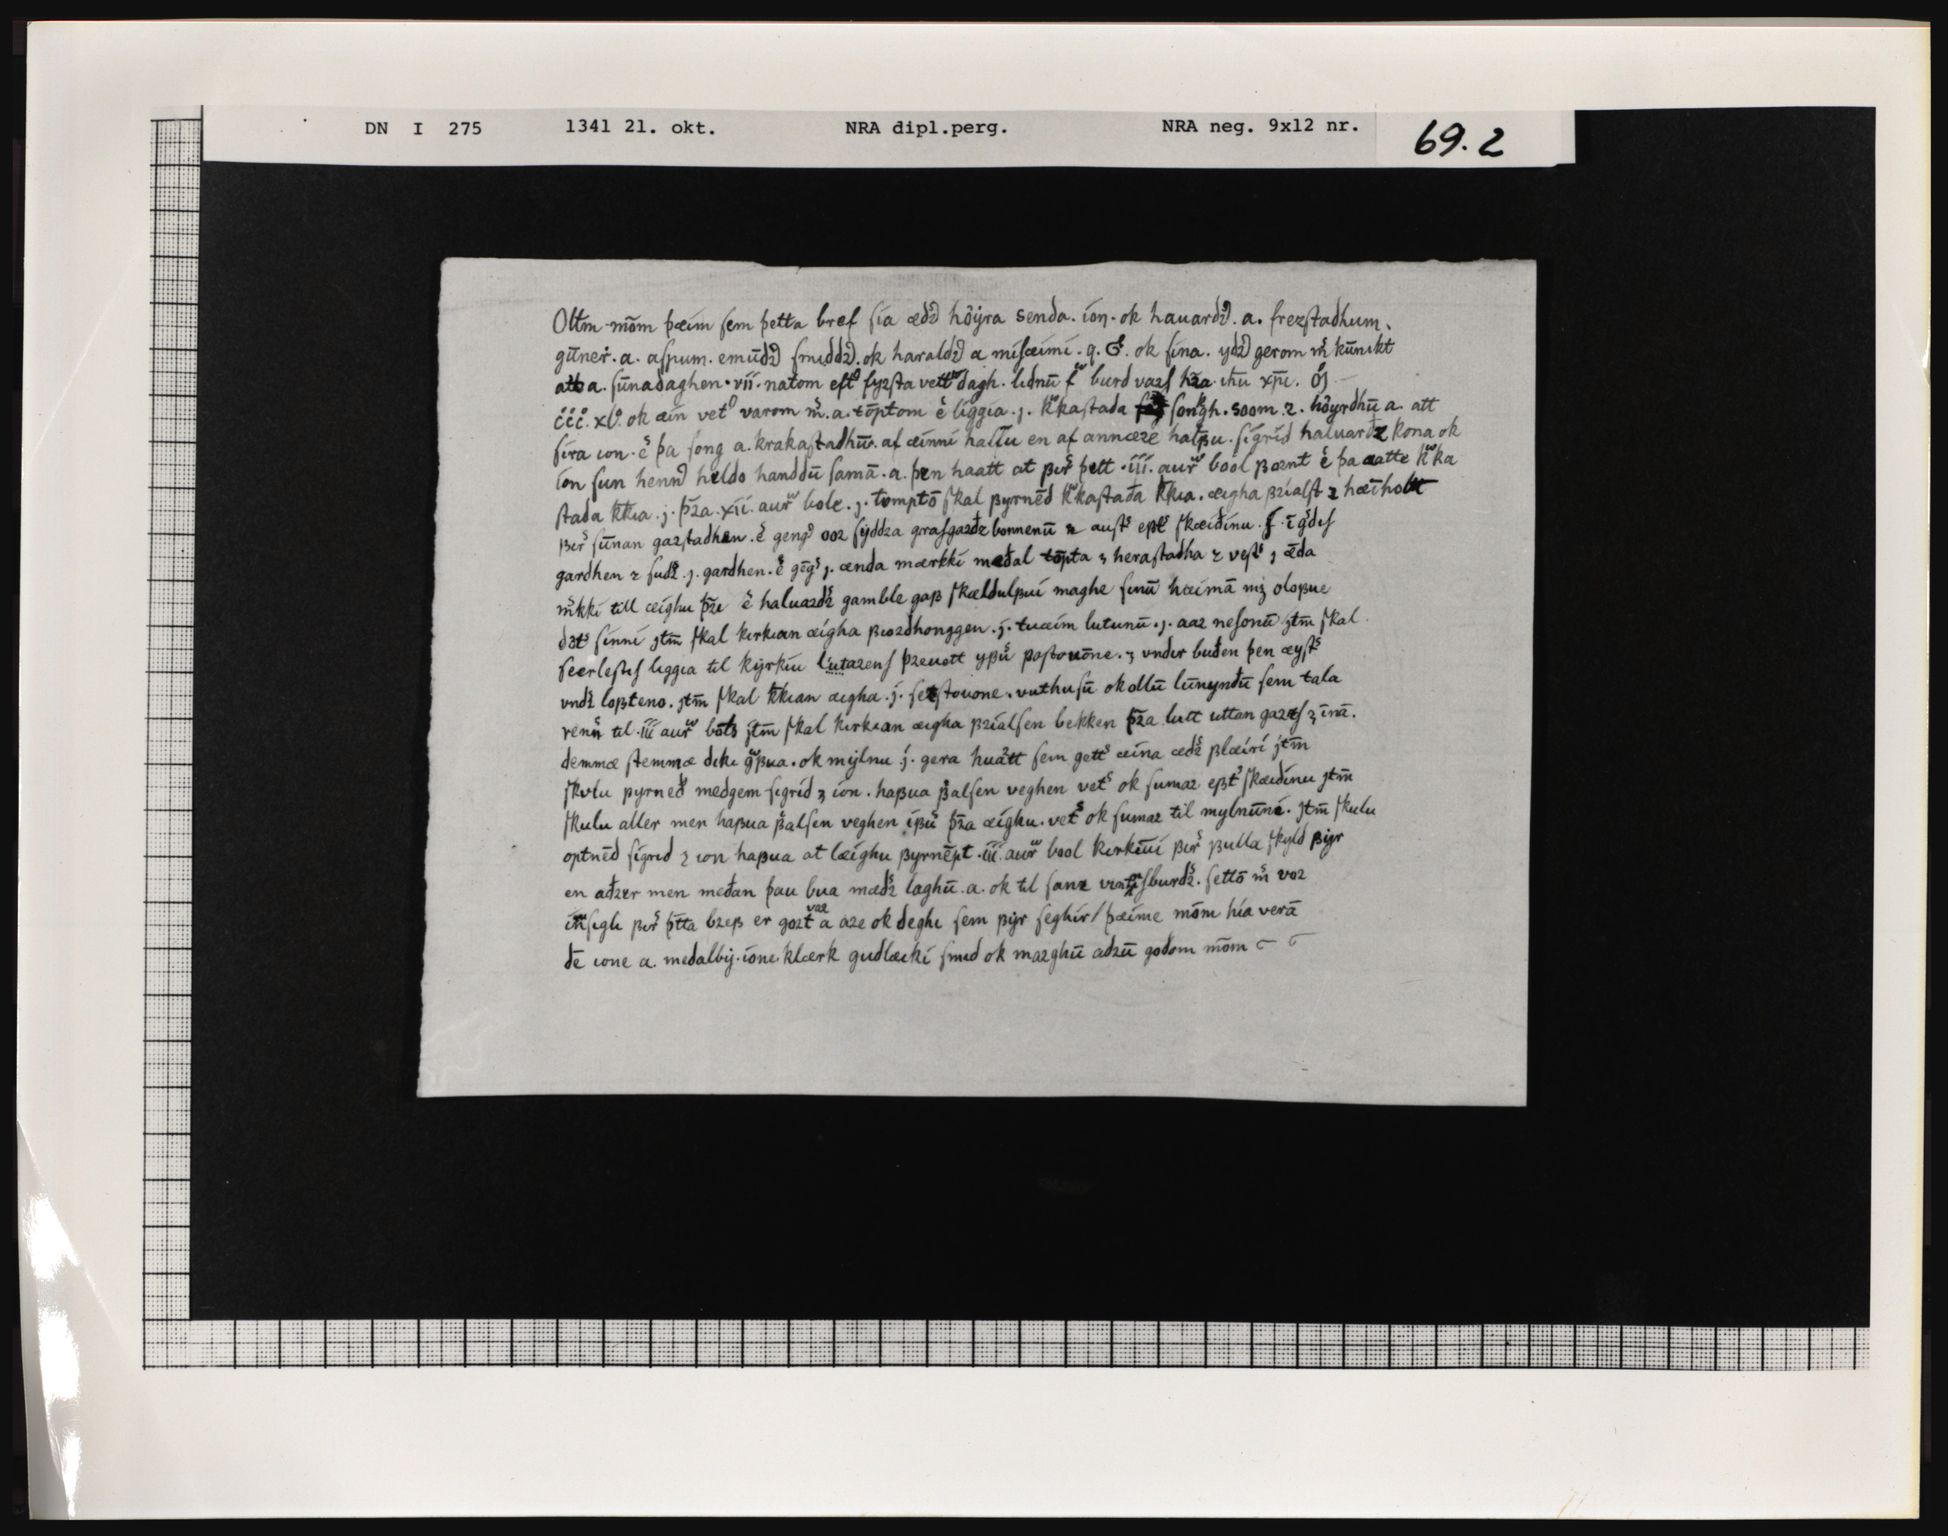 DN I 275 1341 21. okt. NRA dipl.perg. NRA neg. 9x12 nr. 69.2
Ollm mōm þæim sem þetta bref sia æd höyra senda. ion. ok hauard. a. frezstadhum.
gūner. a. aspum. emūd smidd. ok harald a misæimi. q. ok sina. yd gerom kūnikt
a. sūnadaghen. vii. natom eft fyrsta vett dagh. lidnū burd vars hra. ihu xpi.
ccc. xl. ok æin vet varom m. a. tōptom e liggia. j. kkastada songh. soom. 2. höyrdhū a. att
sira ion. e þa song a. krakastadhū. af æinni halfu en af annære halfu. sigrid haluardz kona ok
ion sun henn heldo handdū samā. a. þen haatt at fir þett. iii. aur bool fornt e þa aatte kka
stada kkia. j. þra. xii. aur bole. j. tomptō skal fyrnēd kkastada kkia. æigha frialst 2 hæiholtt
fir sūnan garstadhen. e geng oor syddra grasgardz bonnenū 2 aust eft skæidinu.
gardhen 2 sud. j. gardhen. e gēg j. ænda mærkki mædal tōpta 3 herastadha 2 vest j æda
mkki till æighu þre e haluard gamble gaf skældulfui maghe sinū hæimā miz olofue
dat sinni jtm skal kirkian æigha fiordhonggen. j. tuæim lutunū. j. aar nesonū jtm skal
seerlestis liggia til kyrkiu lutarens þreuett yfu pastouōne. 3 under buden þen æyst
und lofteno. jtm skal kkian æigha. j. setstouone. vuthusū ok ollū lūnyndū sem tala
renn til. iii aur bols jtm skal kirkian æigha frialsen bekken þra lutt uttan garz 3 īnā.
demmæ stemmæ diki gfua. ok mylnu. j. gera huatt sem gett æina æd flæiri jtm
skulu pyrned medgem sigrid 3 ion. hafua falsen veghen vet ok sumar eft skæidinu jtm
skulu aller men hafua falsen veghen ifu þra æighu. vet ok sumar til mylnūne. jtm skulu
optnēd sigrid 2 ion hafua at læighu fyrnēpt. iii. aur bool kirkiuni fir fulla skyld fyr
en adrer men medan þau bua mædr laghū. a. ok til sanz vitnisburd. settō m vor
insigli fir þtta bref er gort var a are ok deghi sem fyr seghir / þæime mōm hia verā
de ione a. medalby. ione klærk gudlæiki smid ok marghū adrū godom mōm